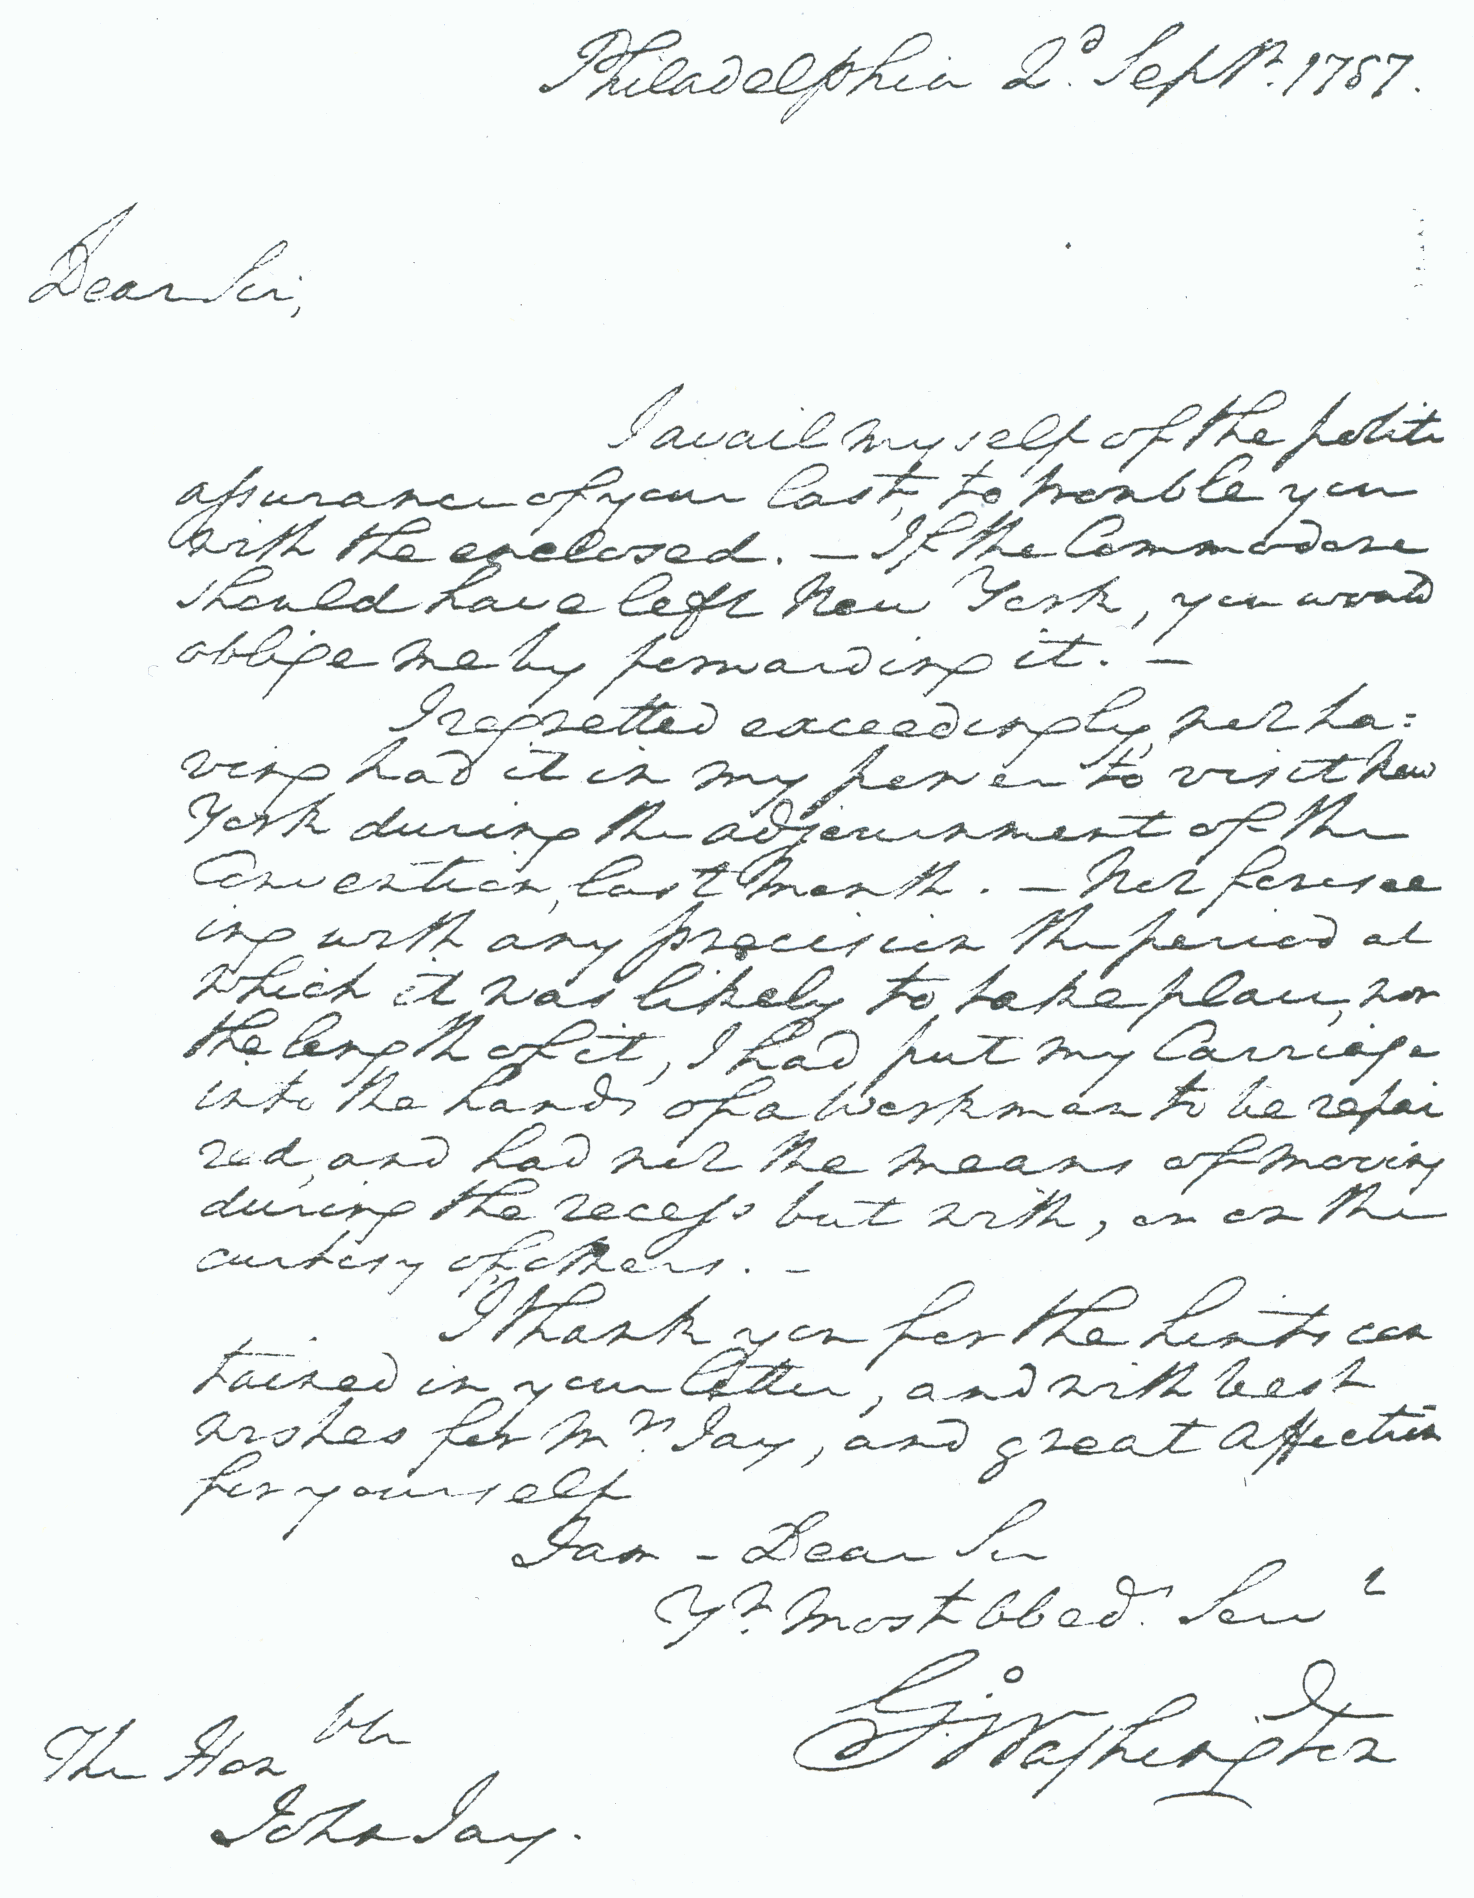 Philadelphia 2d. Septr. 1787.
Dear Sir,
I avail myself of the polite
assurance of your last, to trouble you
with the enclosed. – If the Commodore
should have left New York, you would
oblige me by forwarding it. –
I regretted exceedingly, not ha=
ving had it in my power to visit New
York during the adjournment of the
Convention, last Month. – Not foresee
ing with any precision the period at
which it was likely to take place, nor
the length of it, I had put my Carriage
into the hands of a Workman to be repai
red, and had not the means of moving
during the recess but with, or on the
curtesy of others. –
I thank you for the hints con
tained in your letter, and with best
wishes for Mrs. Jay, and great affection
for yourself
I am – Dear Sir
Yr. Most Obedt. Servt
Go: Washington
The Honble
John Jay.